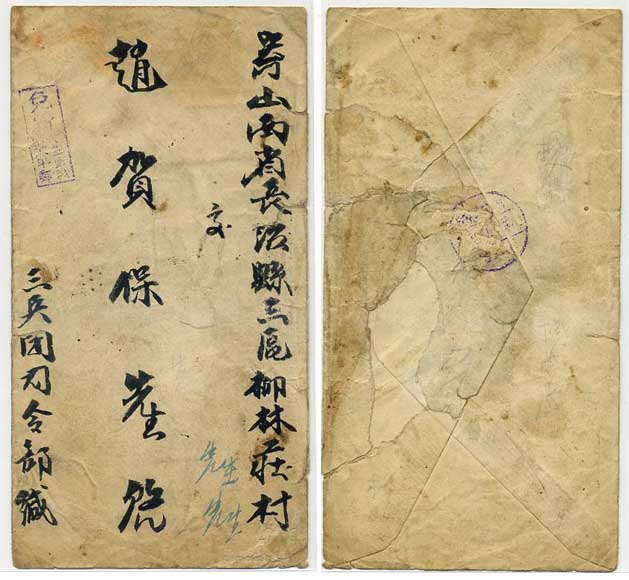 寄山西省長治縣三區柳林莊村
交
趙賀保先生
先生
先生
三兵团司令部緘
免